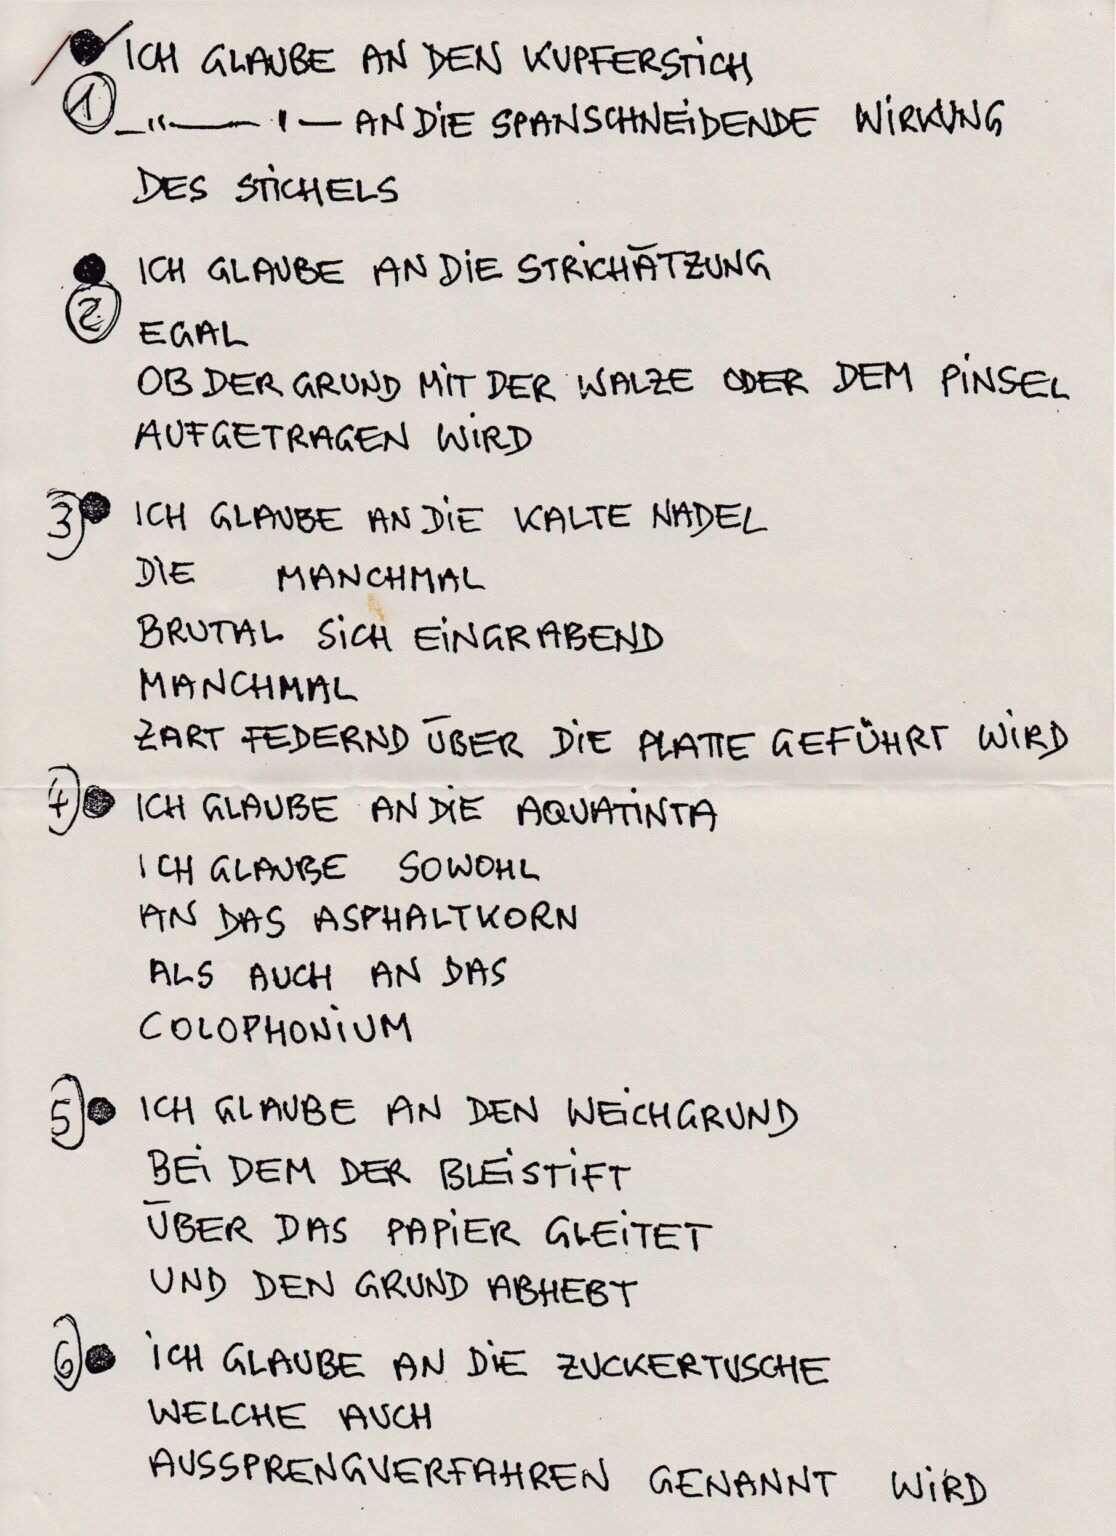 ICH GLAUBE AN DEN KUPFERSTICH
① — " — ' — AN DIE SPANSCHNEIDENDE WIRKUNG
DES STICHELS
ICH GLAUBE AN DIE STRICHÄTZUNG
② EGAL
OB DER GRUND MIT DER WALZE ODER DEM PINSEL
AUFGETRAGEN WIRD
3) ICH GLAUBE AN DIE KALTE NADEL
DIE MANCHMAL
BRUTAL SICH EINGRABEND
MANCHMAL
ZART FEDERND ÜBER DIE PLATTE GEFÜHRT WIRD
4) ICH GLAUBE AN DIE AQUATINTA
ICH GLAUBE SOWOHL
AN DAS ASPHALTKORN
ALS AUCH AN DAS
COLOPHONIUM
5) ICH GLAUBE AN DEN WEICHGRUND
BEI DEM DER BLEISTIFT
ÜBER DAS PAPIER GLEITET
UND DEN GRUND ABHEBT
6) ICH GLAUBE AN DIE ZUCKERTUSCHE
WELCHE AUCH
AUSSPRENGVERFAHREN GENANNT WIRD